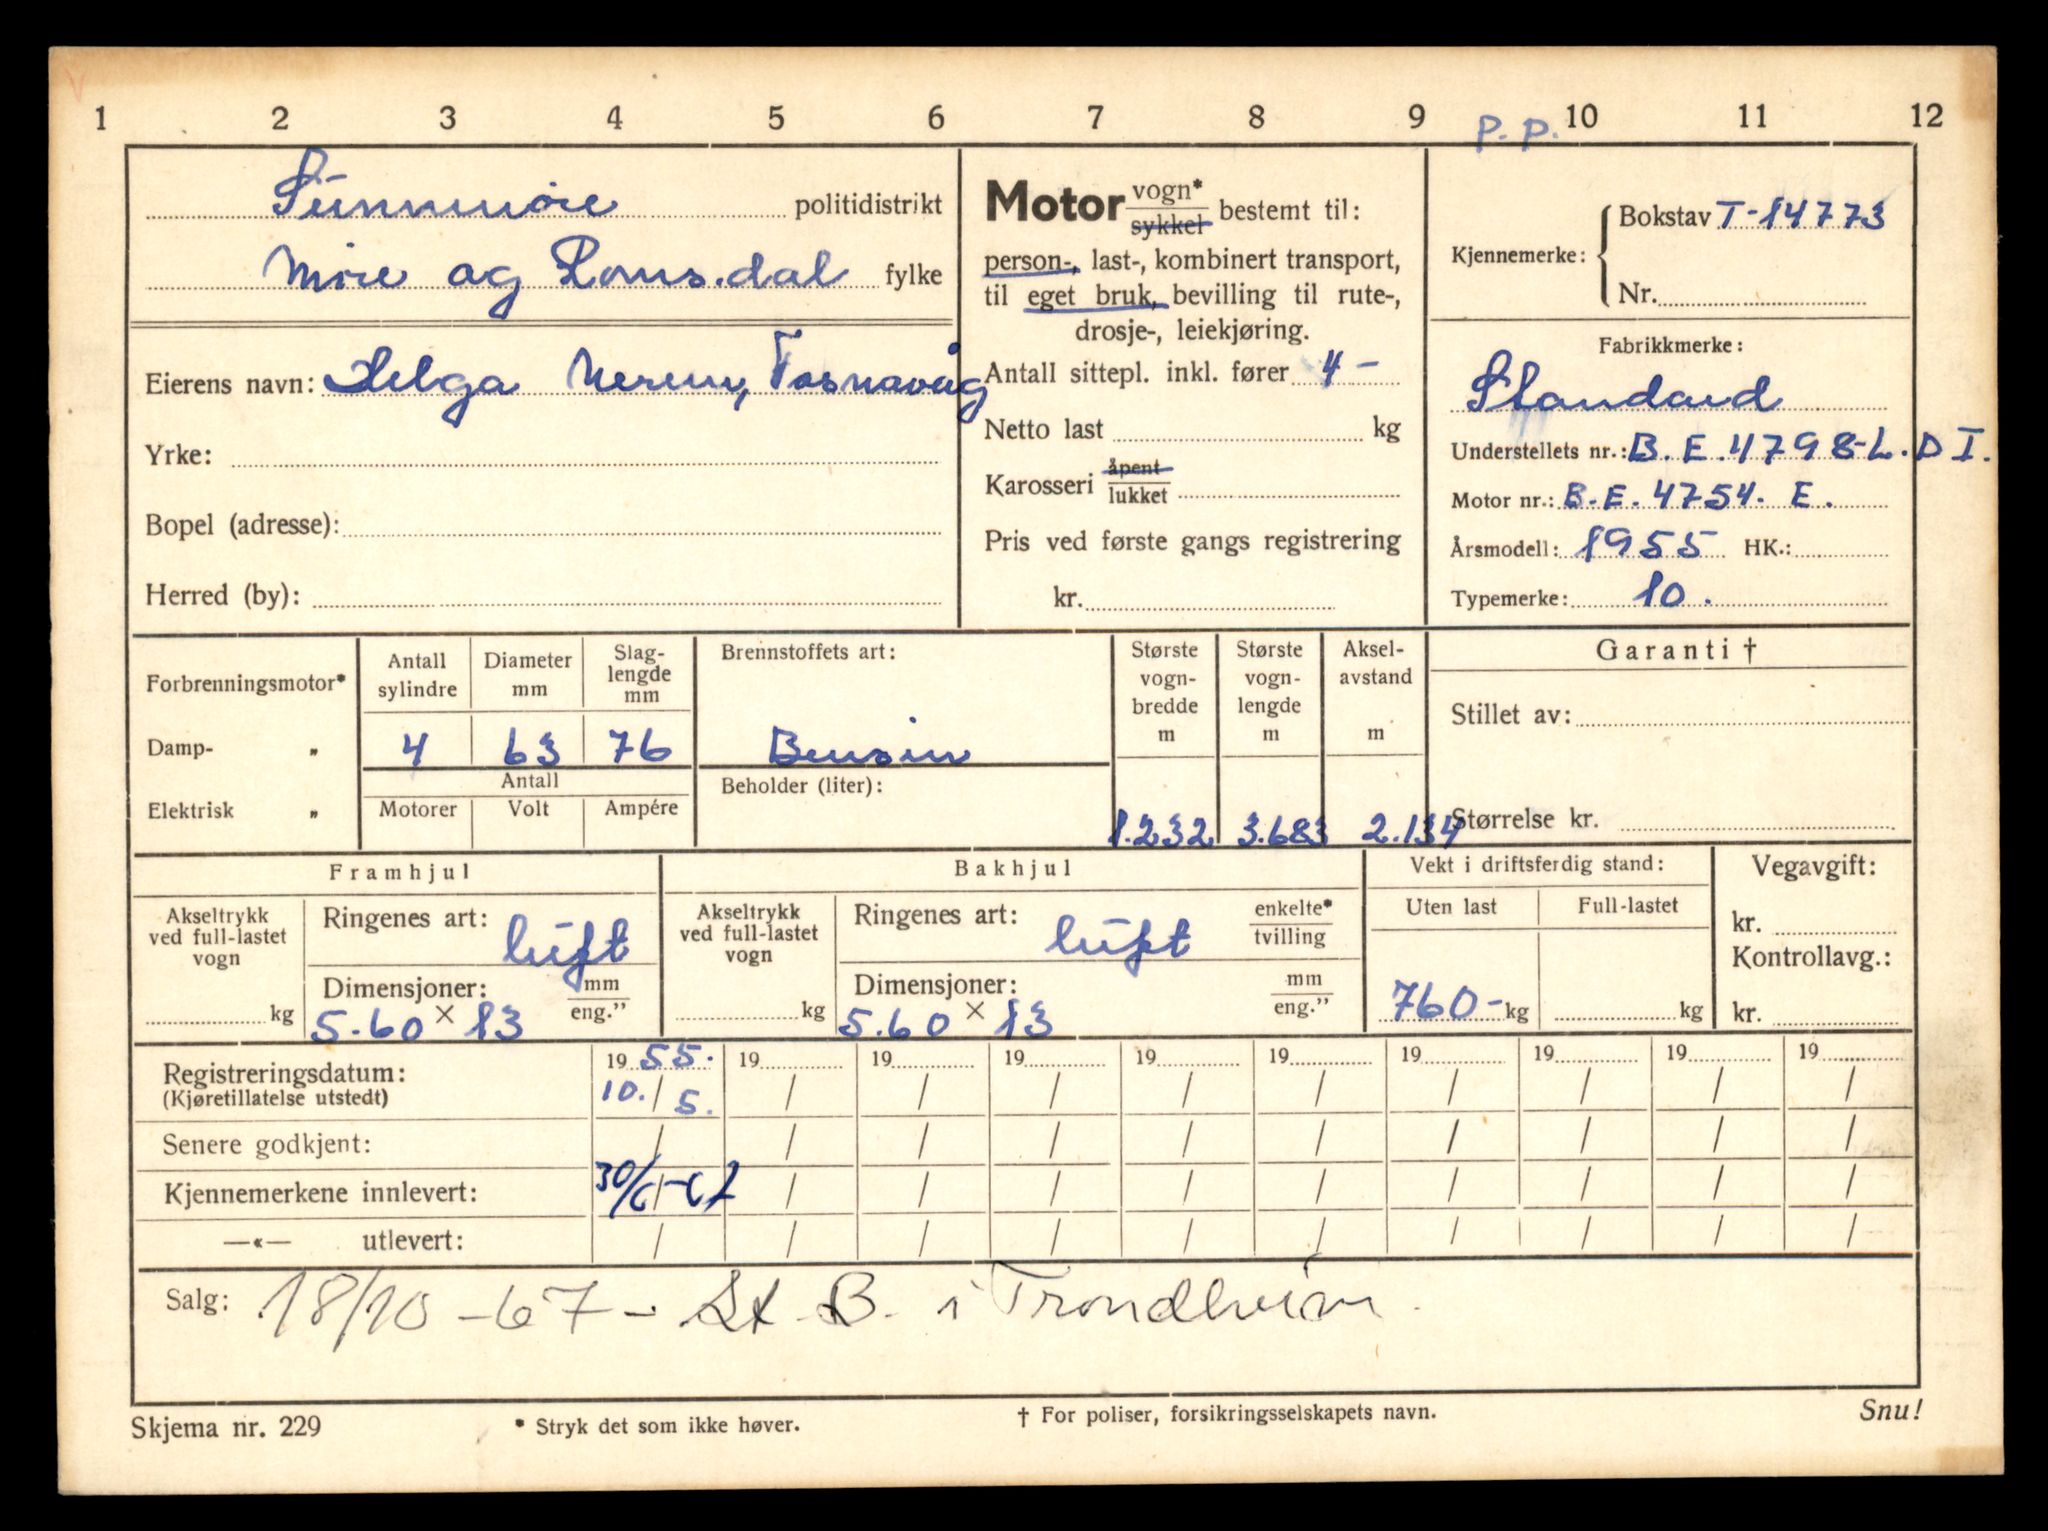 1 2 3 4 5 6 7 8 9 10 11 12
P. P.
Sunnmöre politidistrikt
Möre og Romsdal fylke
Eierens navn: Helga Nerem, Fosnavåg
Yrke:
Bopel (adresse):
Herred (by):
Motor vogn* / sykkel bestemt til:
person-, last-, kombinert transport,
til eget bruk, bevilling til rute-,
drosje-, leiekjøring.
Antall sittepl. inkl. fører 4 -
Netto last kg
Karosseri åpent / lukket
Pris ved første gangs registrering
kr.
Kjennemerke: Bokstav T-14773
Nr.
Fabrikkmerke:
Standard
Understellets nr.: B.E. 4798-L.D I.
Motor nr.: B.E. 4754. E.
Årsmodell: 1955 HK.:
Typemerke: 10.
Forbrenningsmotor*
Damp- „
Elektrisk „
Antall sylindre
Diameter mm
Slag-lengde mm
4 63 76
Antall
Motorer Volt Ampére
Brennstoffets art:
Bensin
Beholder (liter):
Største vogn-bredde m
1.232
Største vogn-lengde m
3.683
Aksel-avstand m
2.134
Garanti †
Stillet av:
Størrelse kr.
Framhjul
Akseltrykk
ved full-lastet
vogn
kg
Ringenes art: luft
Dimensjoner: mm / eng.”
5.60 × 13
Bakhjul
Akseltrykk
ved full-lastet
vogn
kg
Ringenes art: luft enkelte* / tvilling
Dimensjoner: mm / eng.”
5.60 × 13
Vekt i driftsferdig stand:
Uten last Full-lastet
760- kg kg
Vegavgift:
kr.
Kontrollavg.:
kr.
19 55. 19 19 19 19 19 19 19 19 19
Registreringsdatum: 10. / 5. / / / / / / / / /
(Kjøretillatelse utstedt)
Senere godkjent: / / / / / / / / / /
Kjennemerkene innlevert: 30/6-67 / / / / / / / / /
—«— utlevert: / / / / / / / / / /
Salg: 18/10-67 - St. B. i Trondheim.
Skjema nr. 229 * Stryk det som ikke høver. † For poliser, forsikringsselskapets navn. Snu!